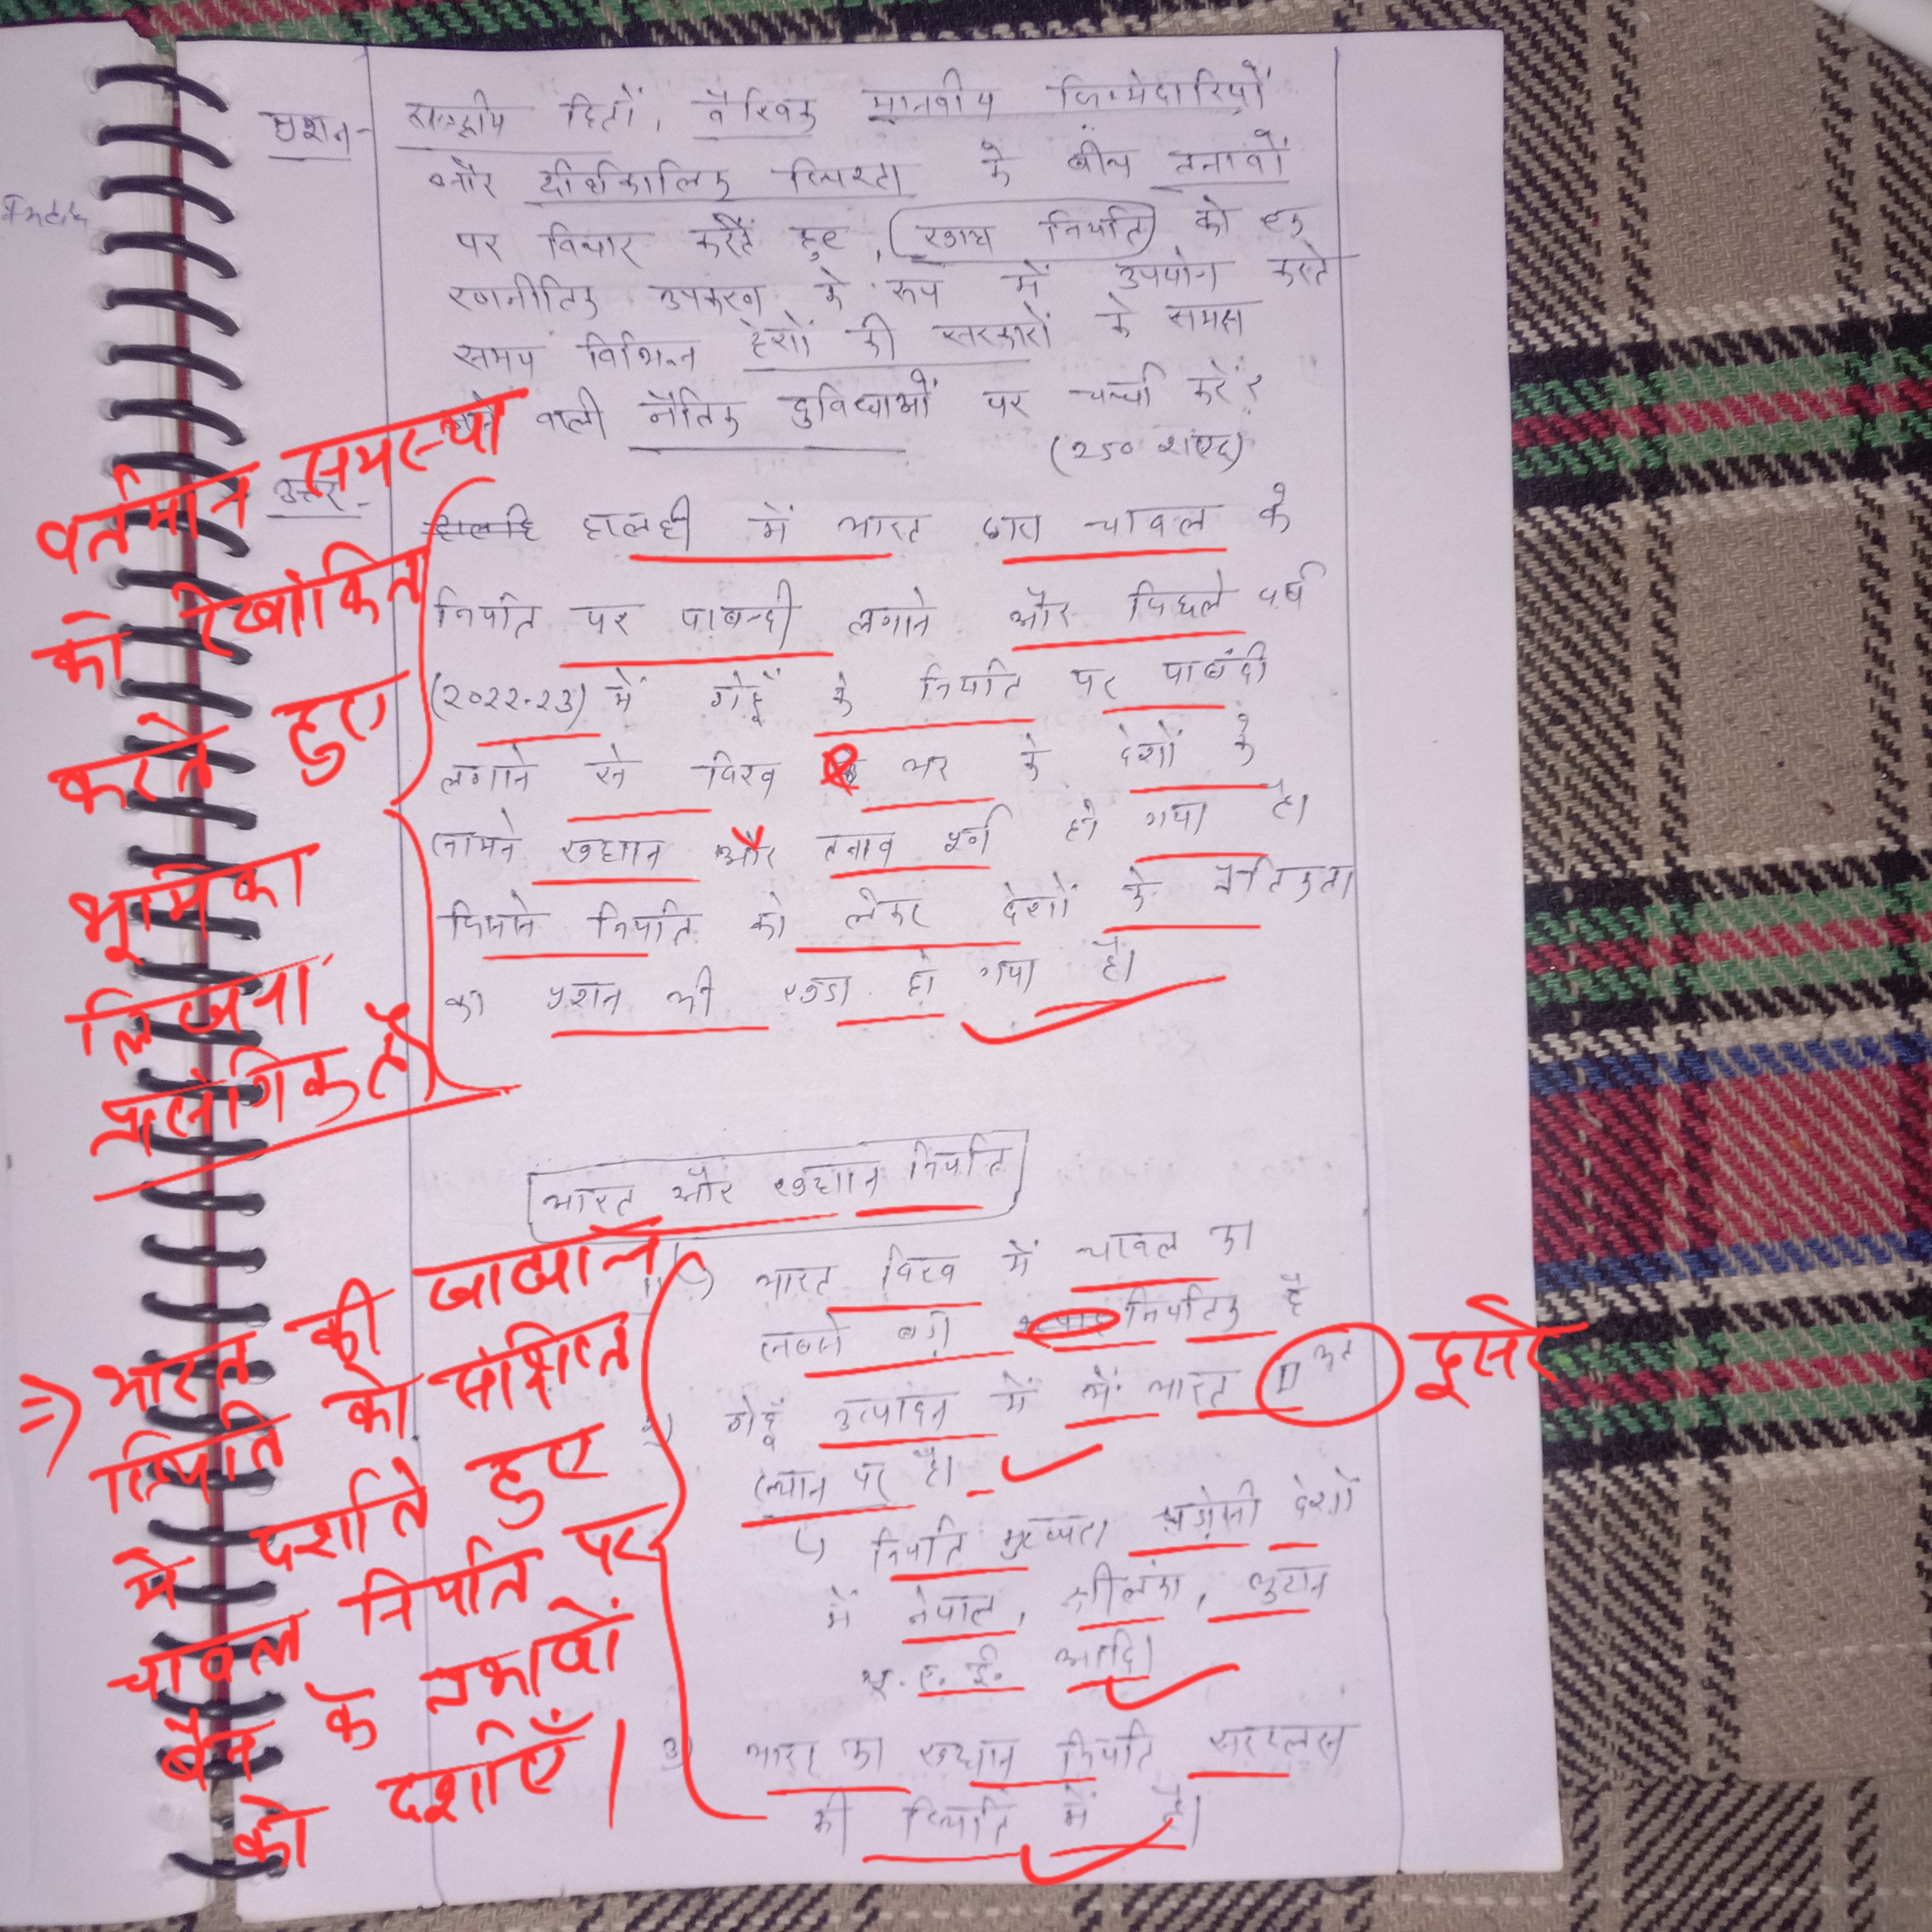 प्रशन- राष्ट्रीय हितों, वैश्विक मानवीय जिम्मेदारियों
और दीर्घकालिक स्थिरता के बीच तनावों
पर विचार करते हुए, खाद्य निर्यात को एक
रणनीतिक उपकरण के रूप में उपयोग करते
समय विभिन्न देशों की सरकारों के समक्ष
वाली नैतिक दुविधाओं पर चर्चा करें?
(250 शब्द)
उत्तर- हालही में भारत द्वारा चावल के
निर्यात पर पाबन्दी लगाने और पिछले वर्ष
(2022-23) में गेहूँ के निर्यात पर पाबंदी
लगाने से विश्व भर के देशों के
सामने खाद्यान और तनाव पूर्ण हो गया है।
जिससे निर्यात को लेकर देशों के नैतिकता
का प्रशन भी खडा हो गया है।
वर्तमान समस्या
को रेखांकित
करते हुए
भूमिका
लिखना
प्रासंगिक है
भारत और खाद्यान निर्यात
1) भारत विश्व में चावल का
सबसे बड़ा निर्यातक है
2) गेहूँ उत्पादन में में भारत II
स्थान पर है।
↳ निर्यात मुख्यता पड़ोसी देशों
में नेपाल, श्रीलंका, भुटान
यू.ए.ई. आदि।
3) भारत का खाद्यान निर्यात सरप्लस
की स्थिति में है।
दूसरे
⇒ भारत की खाद्यान्न
स्थिति को संक्षिप्त
में दर्शाते हुए
चावल निर्यात पर
बैन के प्रभावों
को दर्शाएँ।